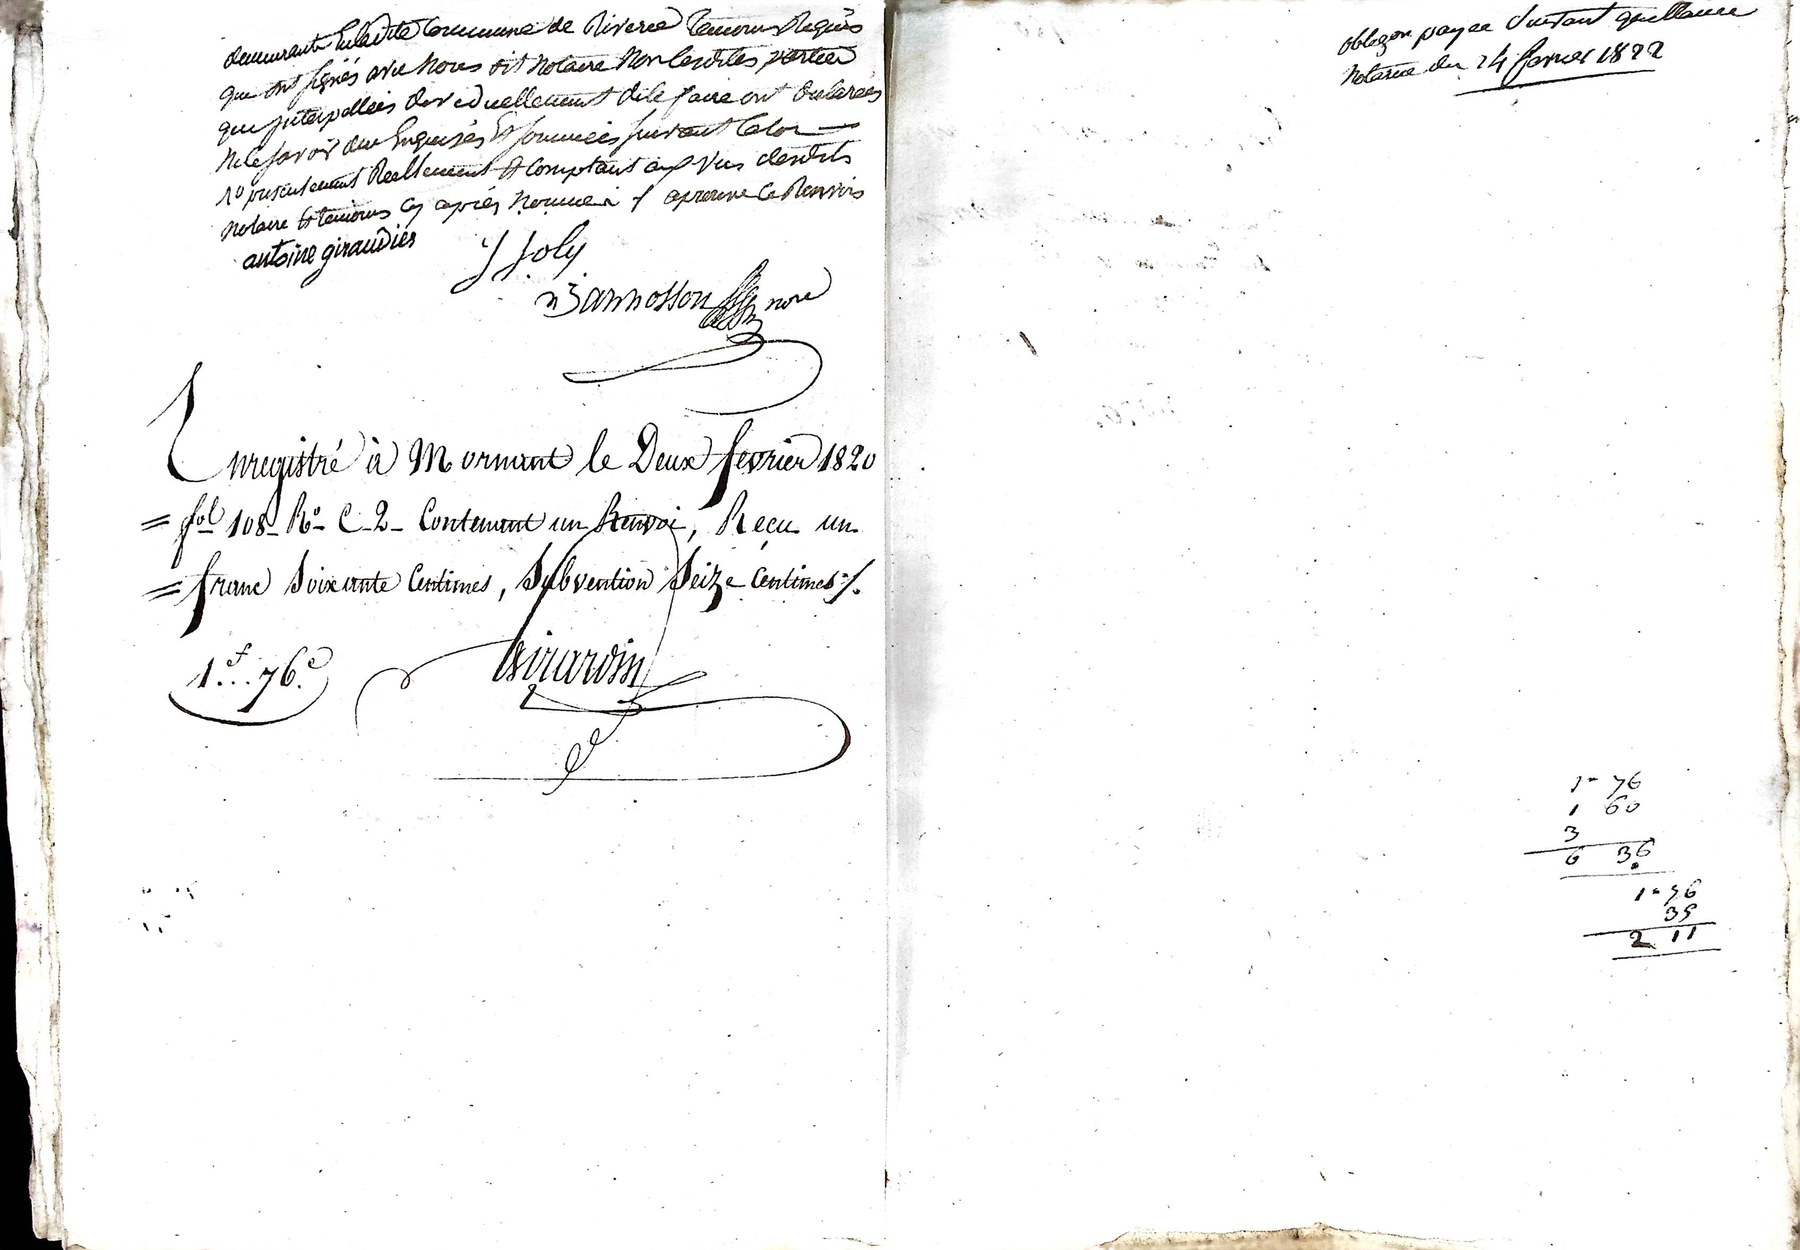 demeurants En ladite Commune de Riverie temoins Requis
que ont signés avec nous dit notaire non lesdites parties
que interpellées de le faire ont declarées
ne le savoir deu Enquises Et sommées suivant la loi
1º presentement Reellement et comptant aux vus desdits
notaire Et temoins cy après nommé à / aprouvé ce Renvois
antoine giraudier
J Joly
Bannosson nore
Enregistré à Mornant le Deux fevrier 1820
= fol 108 Ro C 2 Contenant un Renvoi, Reçu un
= franc Soixante Centimes, Subvention Seize Centimes ./.
1f...76c.
Girardin
obligon payee Suivant quittance
notariée du 14 fevrier 1822
1 - 76
1 60
3
6 36
1 - 76
35
2 11